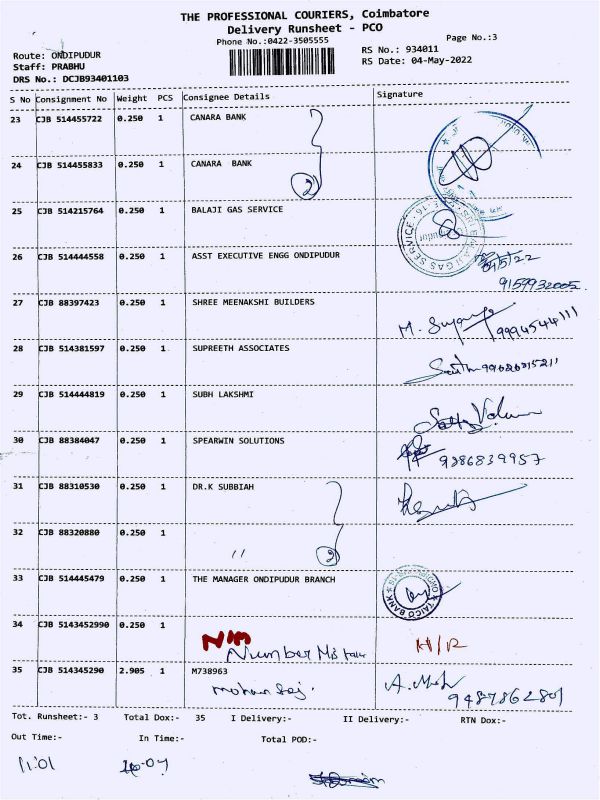 THE PROFESSIONAL COURIERS, Coimbatore
Delivery Runsheet - PCO
Phone No.:0422-3505555
Page No.:3
Route: ONDIPUDUR
RS No.: 934011
Staff: PRABHU
RS Date: 04-May-2022
DRS No.: DCJB93401103
S No Consignment No Weight PCS Consignee Details Signature
23 CJB 514455722 0.250 1 CANARA BANK
24 CJB 514455833 0.250 1 CANARA BANK 2
25 CJB 514215764 0.250 1 BALAJI GAS SERVICE
26 CJB 514444558 0.250 1 ASST EXECUTIVE ENGG ONDIPUDUR
9159932005
27 CJB 88397423 0.250 1 SHREE MEENAKSHI BUILDERS
28 CJB 514381597 0.250 1 SUPREETH ASSOCIATES
29 CJB 514444819 0.250 1 SUBH LAKSHMI
30 CJB 88384047 0.250 1 SPEARWIN SOLUTIONS 9386839957
31 CJB 88310530 0.250 1 DR.K SUBBIAH
32 CJB 88320880 0.250 1 " 2
33 CJB 514445479 0.250 1 THE MANAGER ONDIPUDUR BRANCH
34 CJB 5143452990 0.250 1 NM H/R
Number Mistake
35 CJB 514345290 2.905 1 M738963
9487862801
Tot. Runsheet:- 3 Total Dox:- 35 I Delivery:- II Delivery:- RTN Dox:-
Out Time:- In Time:- Total POD:-
11:01